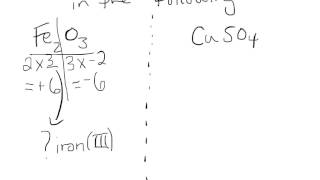 in the following
Fe₂O₃
2x3 3x-2
=+6 =-6
?iron(III)
CuSO₄